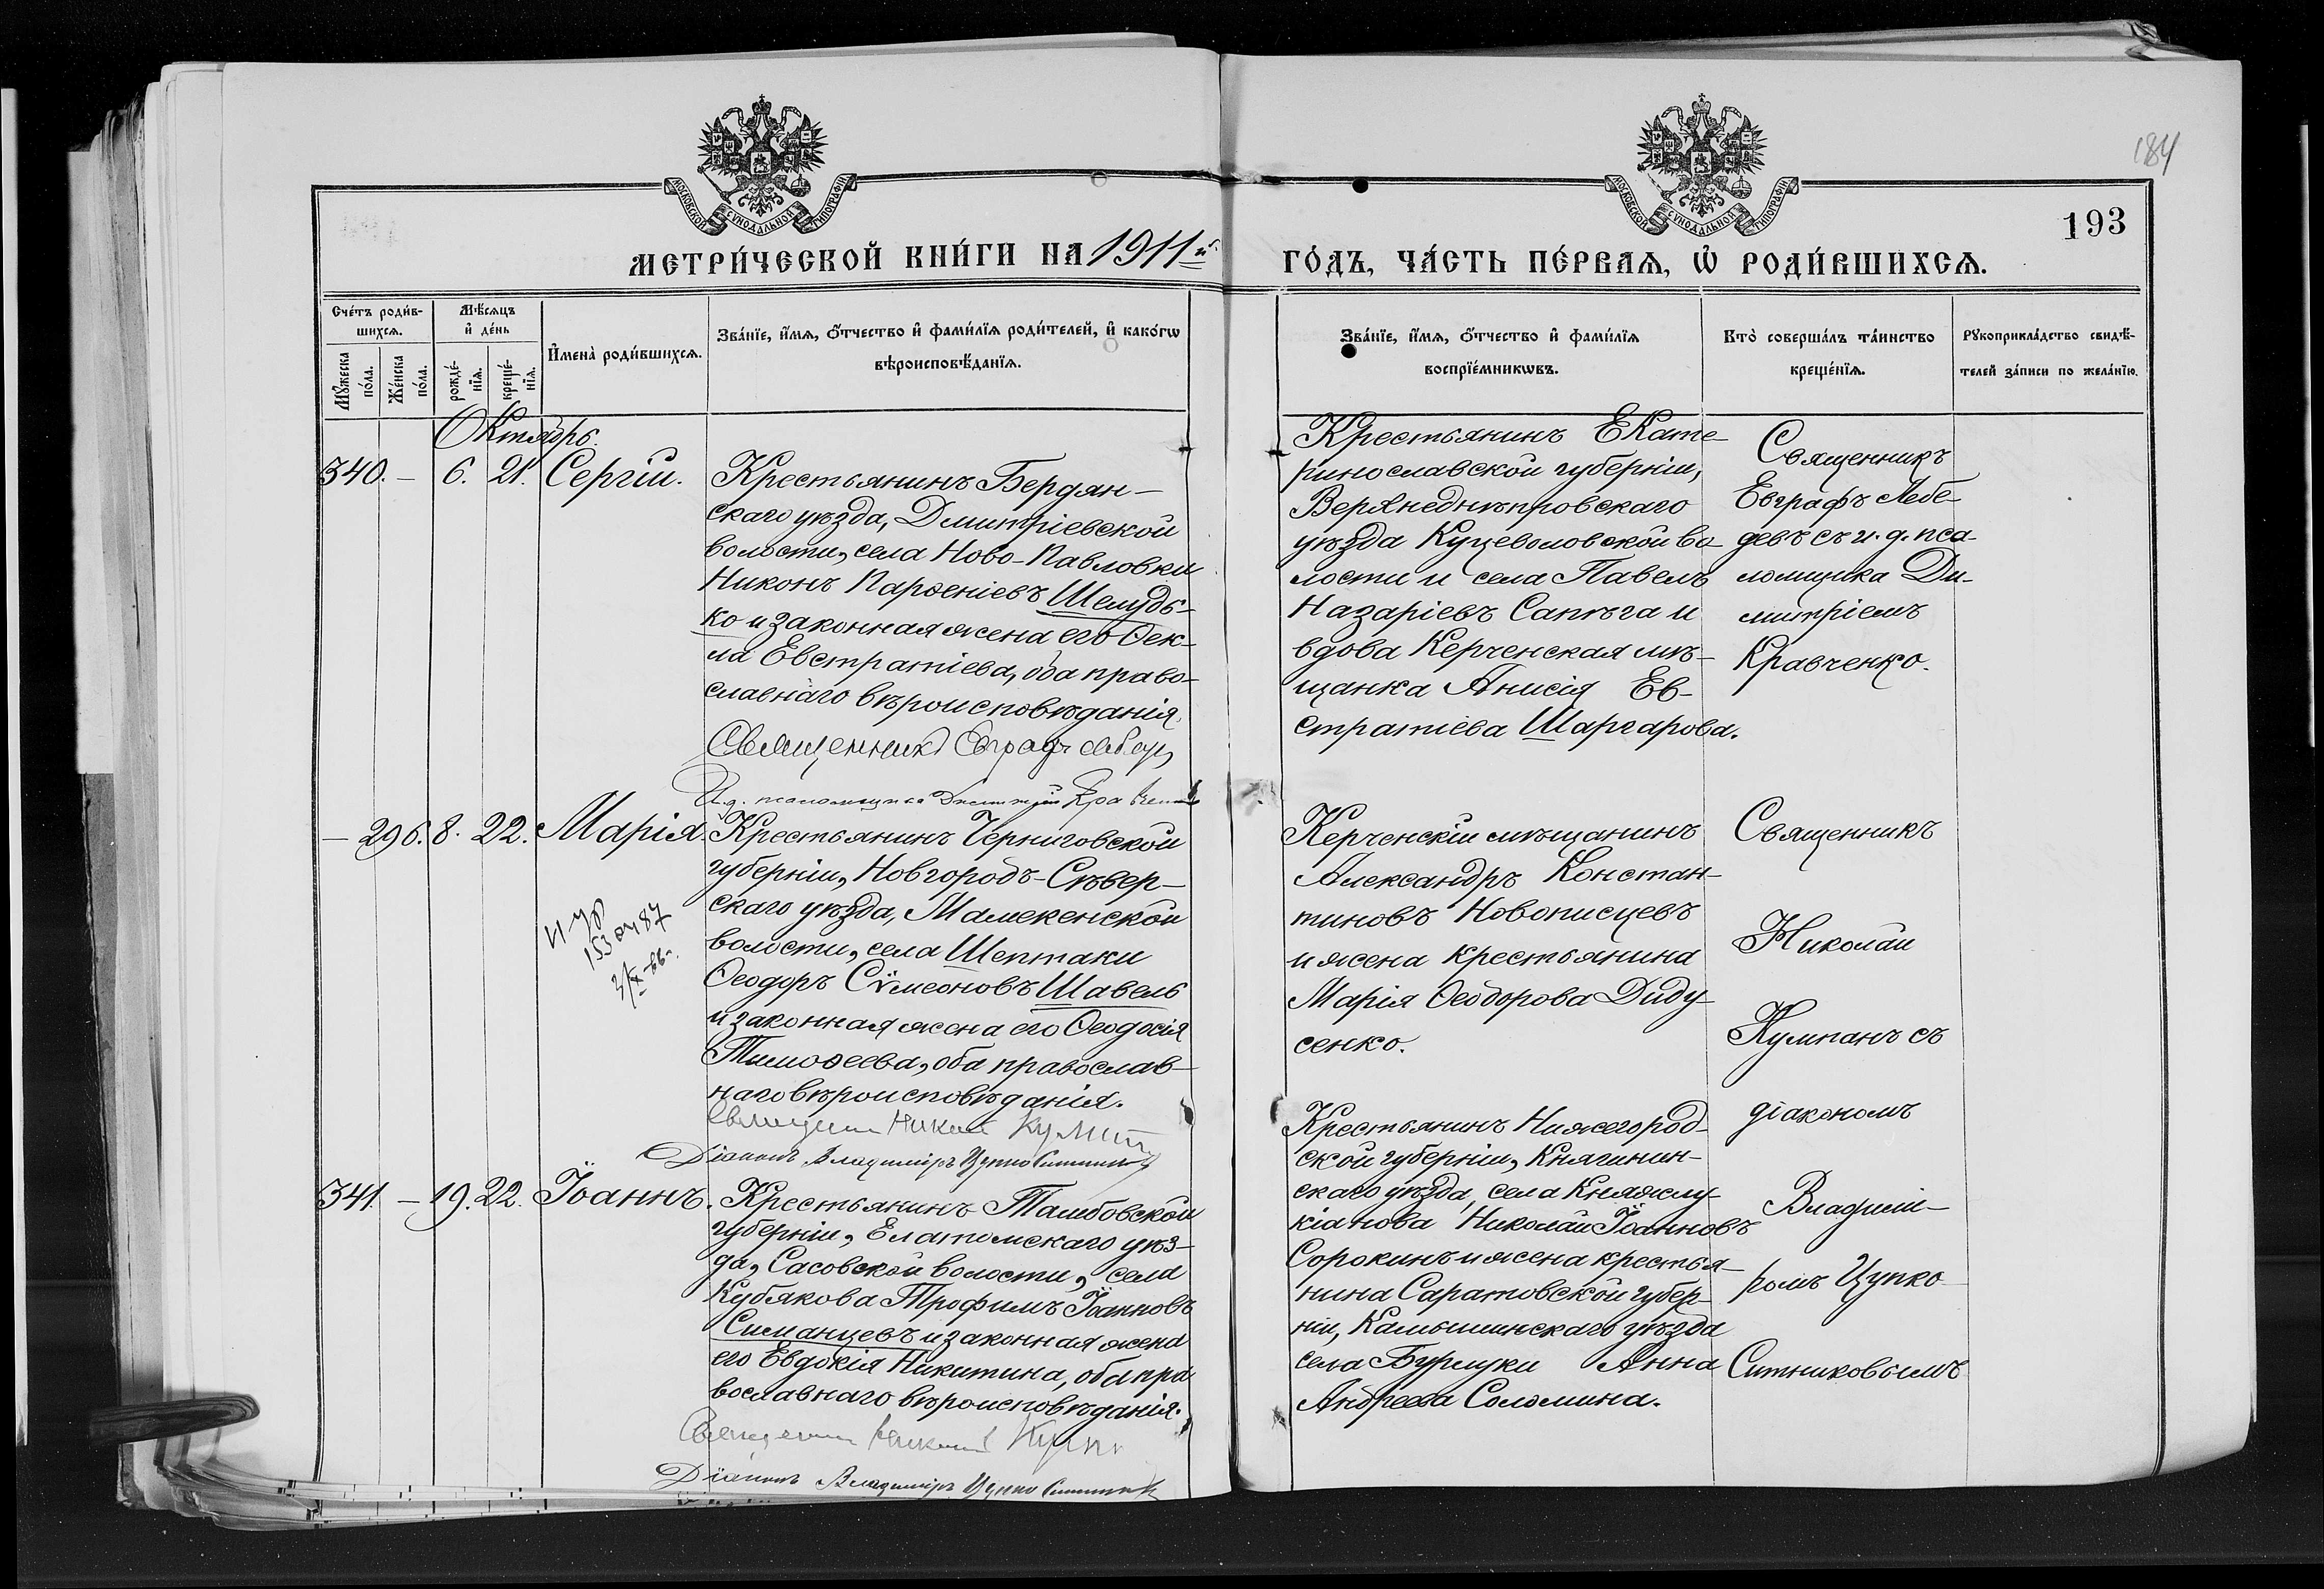 184
193
МОСКОВСКОЙ СѴНОДАЛЬНОЙ ТИПОГРАФІИ
МОСКОВСКОЙ СѴНОДАЛЬНОЙ ТИПОГРАФІИ
МЕТРИ́ЧЕСКОЙ КНИ́ГИ НА 1911й
ГО́ДЪ, ЧА́СТЬ ПЕ́РВАѦ, Ѡ҆ РОДИ́ВШИХСѦ.
Сче́тъ роди́в-
шихсѧ.
Мꙋ́жеска
по́ла.
Же́нска
по́ла.
Мѣ́сѧцъ
и҆ де́нь
рожде́-
нїѧ.
креще́-
нїѧ.
И҆мена̀ роди́вшихсѧ.
Зва́нїе, и҆́мѧ, ѻ҆́тчество и҆ фами́лїѧ роди́телей, и҆ како́гѡ
вѣроисповѣ́данїѧ.
Зва́нїе, и҆́мѧ, ѻ҆́тчество и҆ фами́лїѧ
воспрїе́мникѡвъ.
Кто̀ соверша́лъ та́инство
креще́нїѧ.
Рꙋкоприкла́дство свидѣ́-
телей за́писи по жела́нїю.
Октябрь.
340. – 6. 21. Сергій.
Крестьянинъ Бердян-
скаго уѣзда, Дмитріевской
волости, села Ново-Павловки
Никонъ Парѳеніевъ Шелудь-
ко и законная жена его Ѳек-
ла Евстратіева, оба право-
славнаго вѣроисповѣданія.
Священникъ Евграфъ Лебедевъ
И.д. псаломщика Дмитрій Кравченко
Крестьянинъ Екате-
ринославской губерніи,
Верхнеднѣпровскаго
уѣзда Куцеволовской во-
лости и села Павелъ
Назаріевъ Сапѣга и
вдова Керченская мѣ-
щанка Анисія Ев-
стратіева Шаргарова.
Священникъ
Евграфъ Лебе-
девъ съ и. д. пса-
ломщика Ди-
митріемъ
Кравченко.
– 296. 8. 22. Марія.
Крестьянинъ Черниговской
губерніи, Новгородъ-Сѣвер-
скаго уѣзда, Мамекенской
волости, села Шептаки
Ѳеодоръ Сѵмеоновъ Шавель
и законная жена его Ѳеодосія
Тимоѳеева, оба православ-
наго вѣроисповѣданія.
Священникъ Николай Кумпанъ
Діаконъ Владиміръ Цупко Ситниковъ
Керченскій мѣщанинъ
Александръ Констан-
тиновъ Новописцевъ
и жена крестьянина
Марія Ѳеодорова Диду-
сенко.
Священникъ
Николай
Кумпанъ съ
діакономъ
Владимі-
ромъ Цупко-
Ситниковымъ
341. – 19. 22. Іоаннъ.
Крестьянинъ Тамбовской
губерніи, Елатомскаго уѣз-
да, Сасовской волости, села
Кубякова Трофимъ Іоанновъ
Симанцевъ и законная жена
его Евдокія Никитина, оба пра
вославнаго вѣроисповѣданія.
Священникъ Николай Кумпанъ
Діаконъ Владиміръ Цупко Ситниковъ
Крестьянинъ Нижегород-
ской губерніи, Княгинин-
скаго уѣзда, села Княжлу-
кіанова Николай Іоанновъ
Сорокинъ и жена крестья-
нина Саратовской губер-
ніи, Камышинскаго уѣзда
села Бурлуки Анна
Андреева Соломина.